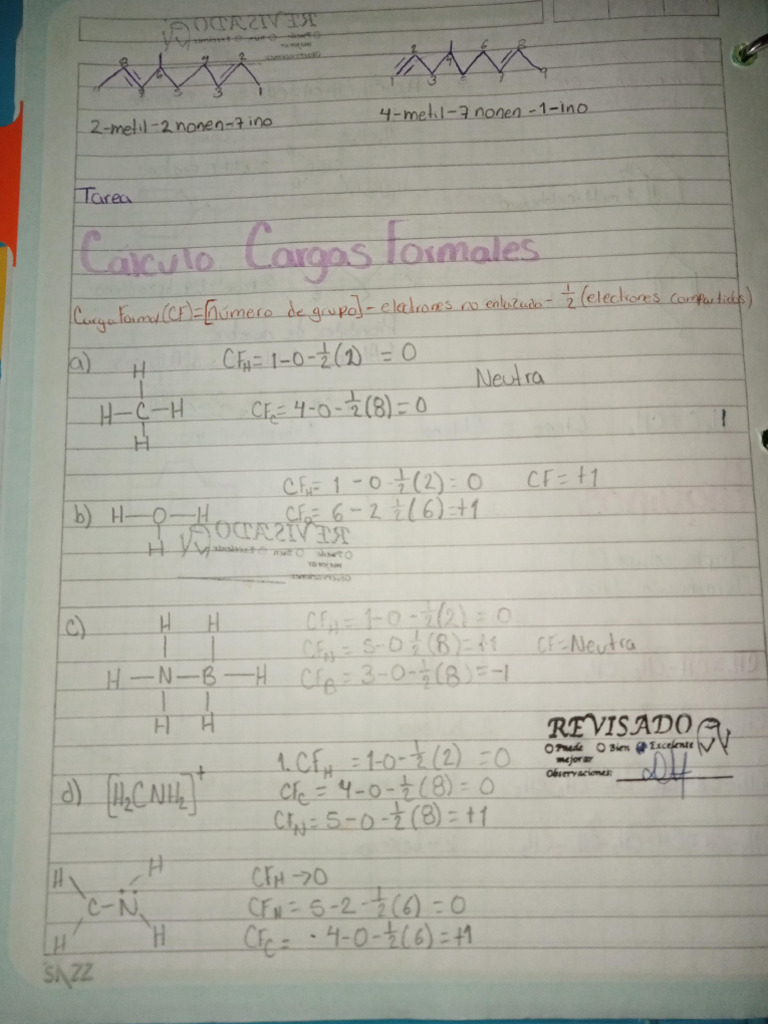 REVISADO
8 6 4 2
9 7 5 3 1
2 4 6 8
1 3 5 7 9
2-metil-2 nonen-7 ino
4-metil-7 nonen-1-ino
Tarea
Cálculo Cargas Formales
Carga Formal (CF)=[número de grupo]- electrones no enlazado- 1/2 (electrones compartidos)
a) H CF_H= 1-0-1/2(2) = 0
Neutra
H-C-H CF_C= 4-0-1/2(8)=0
H
CF_H= 1-0-1/2(2)=0 CF=+1
b) H-O-H CF_O= 6-2 1/2(6)=+1
H
REVISADO
c) H H CF_H= 1-0-1/2(2)=0
CF_N= 5-0 1/2(8)=+1 CF=Neutra
H-N-B-H CF_B= 3-0-1/2(8)=-1
H H
REVISADO
O Puede mejorar O Bien Excelente
Observaciones:
1. CF_H =1-0-1/2(2) =0
d) [H₂CNH₂]⁺ CF_C= 4-0-1/2(8)=0
CF_N= 5-0-1/2(8)=+1
H H CF_H→0
C-N̈ CF_N= 5-2-1/2(6)=0
H H CF_C= 4-0-1/2(6)=+1